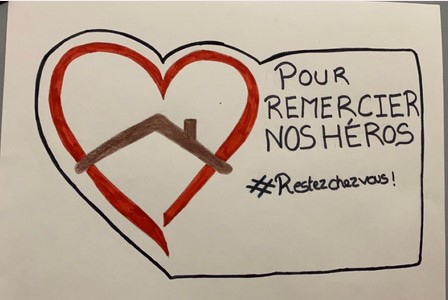 POUR
REMERCIER
NOS HÉROS
#Restezchezvous!